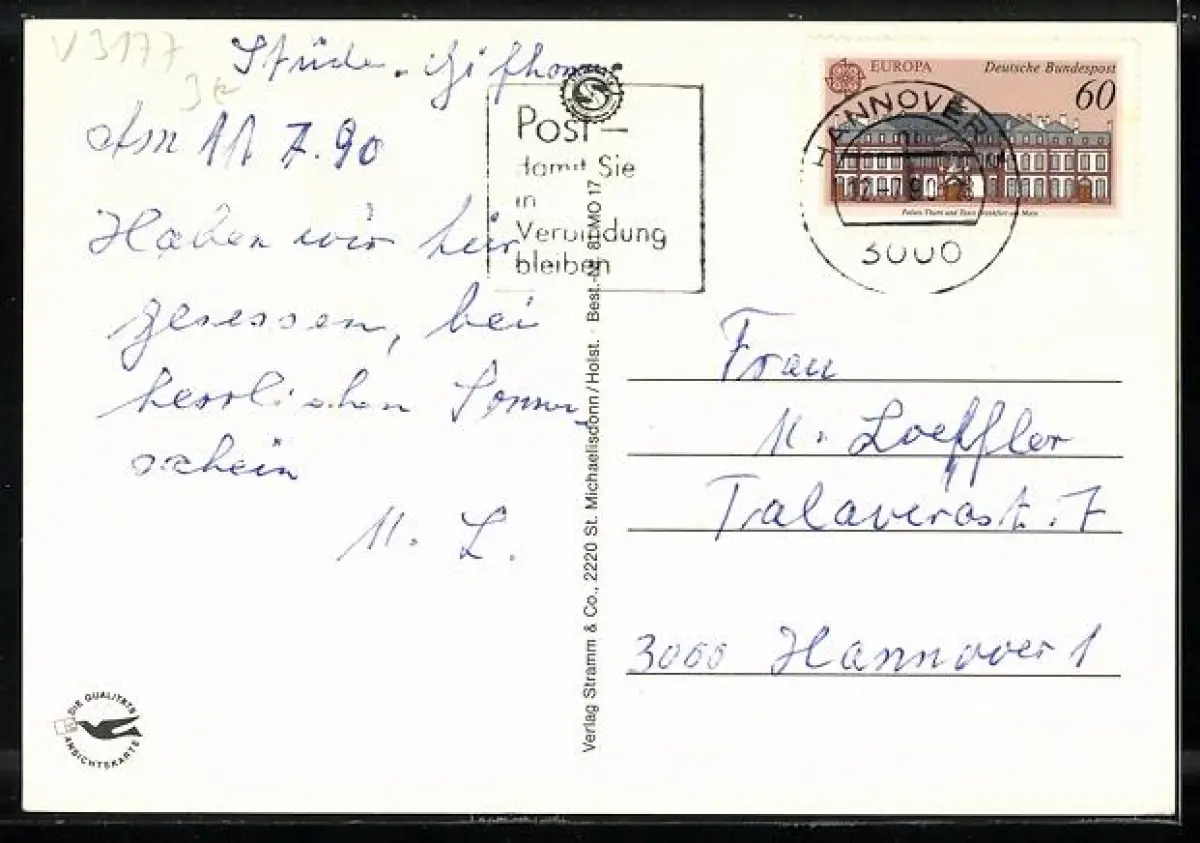 V 3177
3€
Stüde - Gifhorn
Am 11 7.90
Haben wir hier
gesessen, bei
herrlichen Sonnen
schein
M. L.
Post –
damit Sie
in
Verbindung
bleiben
EUROPA
Deutsche Bundespost
60
Palais Thurn und Taxis Frankfurt am Main
HANNOVER 1
3000
Frau
M. Loeffler
Talaverastr. 7
3000 Hannover 1
Verlag Stramm & Co., 2220 St. Michaelisdonn/Holst. · Best.-Nr. 81 MO 17
DIE QUALITÄTS
ANSICHTSKARTE